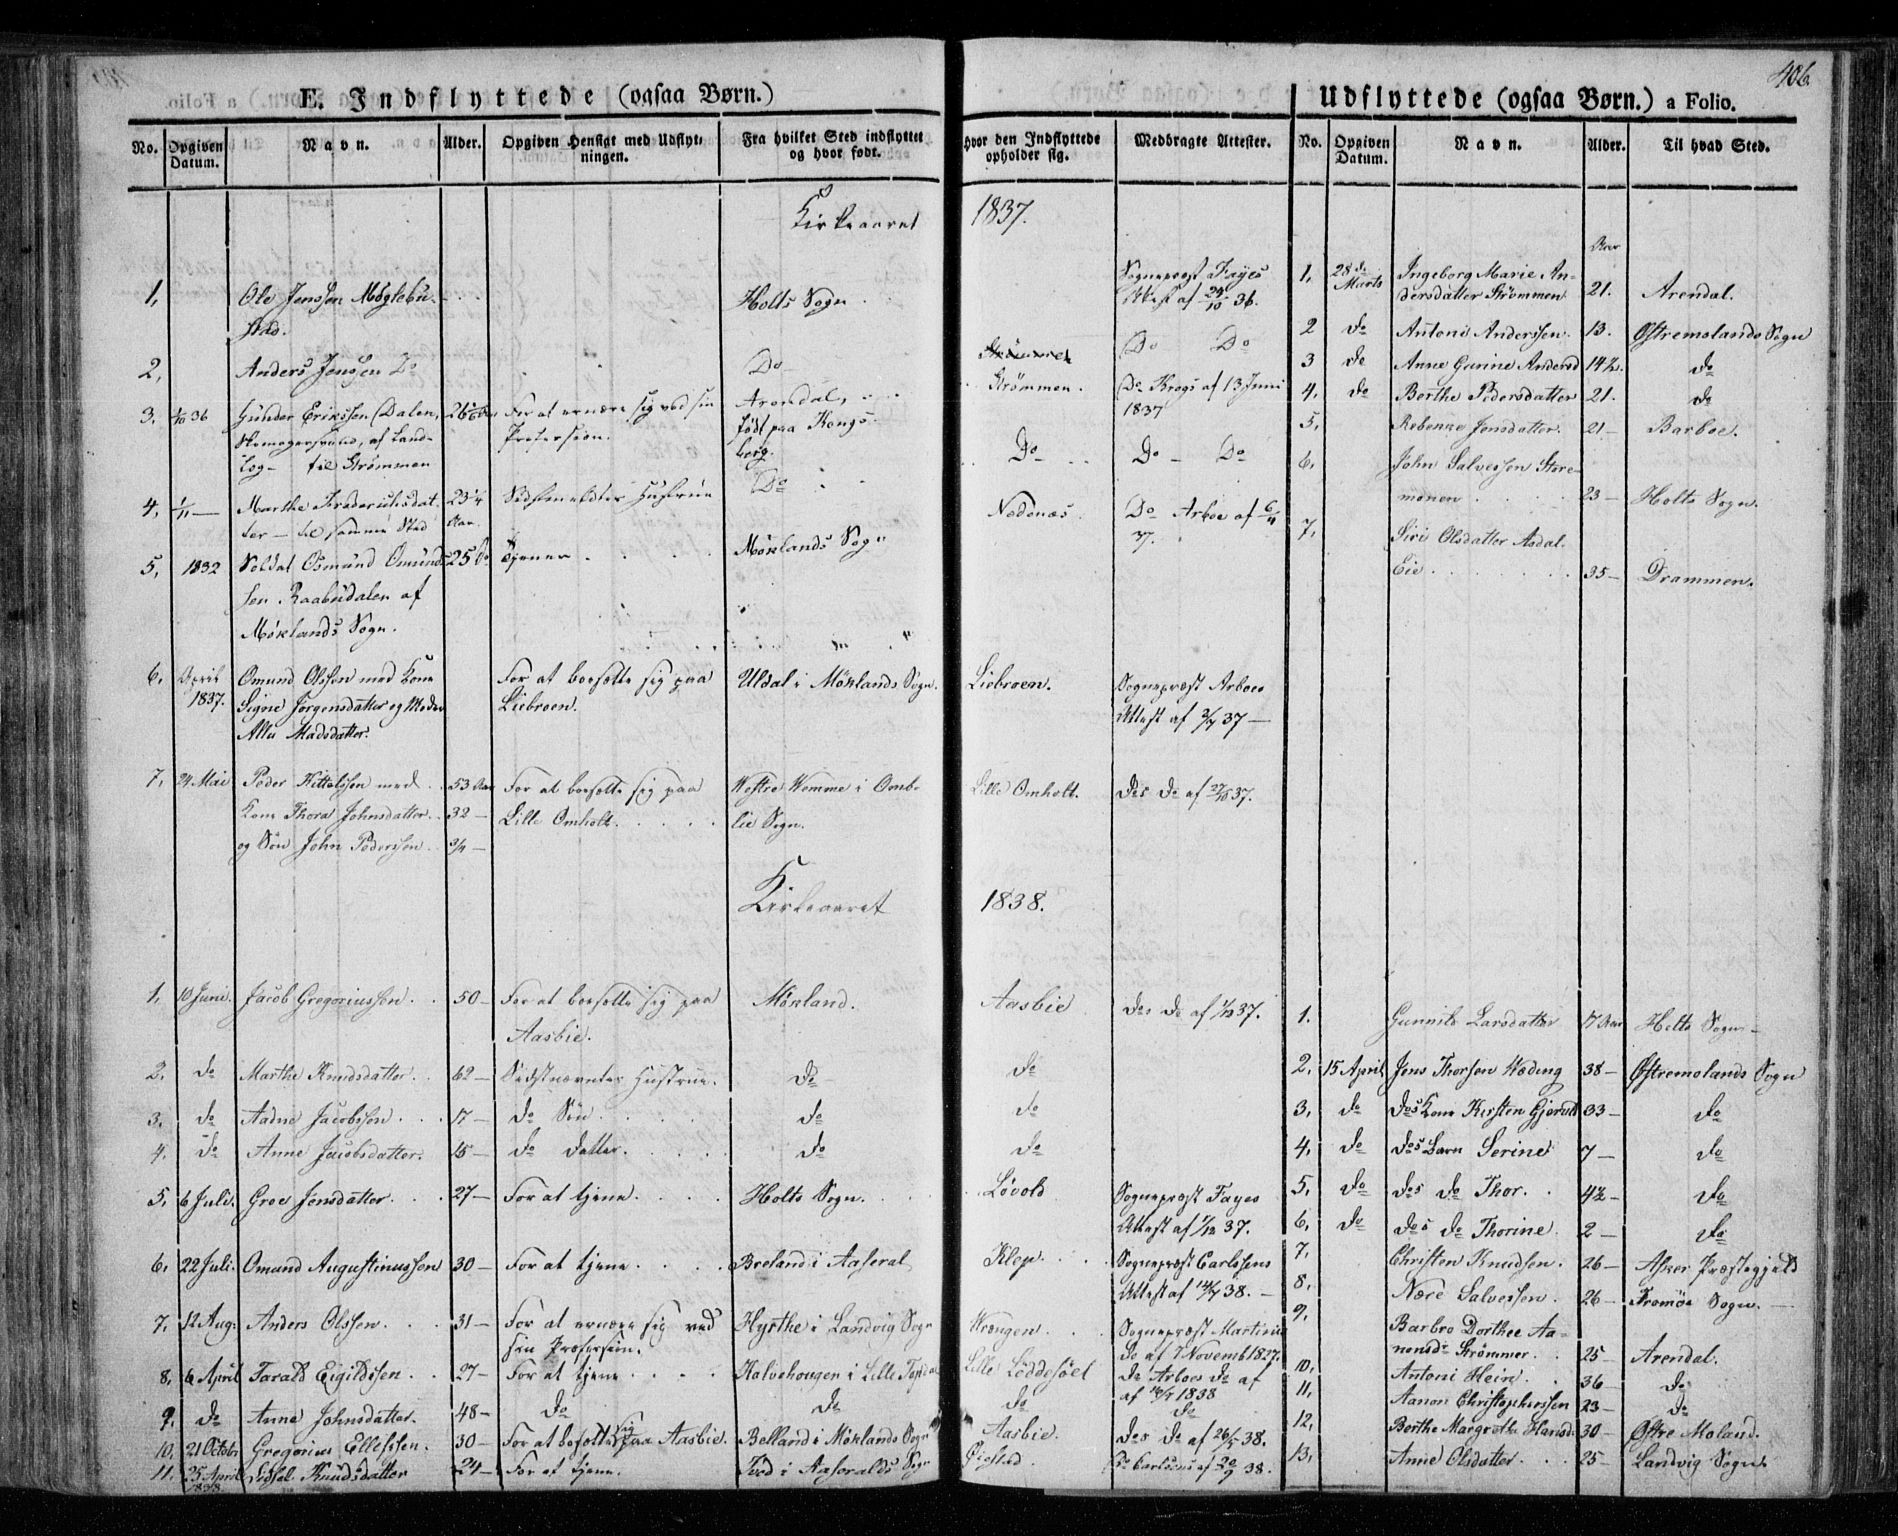 406.
E. Indflyttede (ogsaa Børn.)
No. Opgiven Datum. Navn. Alder. Opgiven Hensigt med Udflytningen. Fra hvilket Sted indflyttet og hvor født. hvor den Indflyttede opholder sig. Medbragte Attester.
Kirkeaaret 1837.
1, Ole Jenssen Møglebu- Holts Sogn Sognepræst Fayes
stad. Attest af 36.
2, Anders Jensen Do Do Do Do
Strømmen. Do Krogs af 13 Juni
1837
3. 36 Gunder Erikssen (Dalen, 26 For at ernære sig ved sin Arendal,
af Land- Profession. født paa Kongs-
Log- til Strømmen berg.
Do Do Do
4, 1/11 — Marthe Frederiksdat- 23 1/4 Sidstmeldtes Hustrue Do
ter — til samme Sted Aar.
5, 1832 Soldat Osmund Omund- 25 do Tjener Møklands Sogn Nedenæs. Do Arboe af 6/11
sen Raabudalen af 37.
Møklands Sogn.
6. April Omund Olssen med Kone For at bosætte sig paa Uldal i Møklands Sogn. Liebroen. Sognepræst Arboes
1837. Signe Jørgensdatter og Moder Liebroen. Attest af 37 —
Madsdatter.
7. 24 Mai Peder Kittelssen med 53 Aar For at bosætte sig paa Westre Wemme i Omb- Lille Omholt. Des Do af 37.
Kone Thora Johnsdatter 32 — Lille Omholt. lie Sogn.
og Søn John Pedersen 3/4 —
Kirkeaaret 1838.
1, 10 Juni. Jacob Gregoriussen. 50 — For at bosætte sig paa Møkland. Aasbie Des Do af 1/12 37.
Aasbie.
2. do Marthe Knudsdatter. 62 — Sidstnævntes Hustrue. do do
3. do Aadne Jacobssen 17 — do Søn do do
4. do Anne Jacobsdatter. 15 — do Datter. do do
5, 6 Juli. Groe Jensdatter 27 — For at tjene Holts Sogn. Løvold Sognepræst Fayes
Attest af 1/12 37.
6. 22 Juli. Omund Augustinussen 30 — For at tjene Breland i Aaseral Klep Sognepræst Carlssens
Attest af 14/7 38. —
7, 12 Aug. Anders Olssen. 31 — For at ernære sig ved Hyrthe i Landvig Sogn Wrængen Sognepræst Martinius
sin Profession. do af 7 Novemb 1827.
8, 6 April Tarald Eigildssen 27 — For at tjene Halvehougen i Lille Lille Løddesøel Do Arboes Do af
af 1838
9. do Anne Johnsdatter. 48 — do do do do
10, 21 Octobr Gregorius Ellefssen. 30 — For at bosætte sig paa Aasbie. Belland i Møklands Sogn Aasbie. Des Do af 26/5 38.
11. 25 April Knudsdatter 24 — For at tjene. Tved i Aaseralds Sogn Øiestad Do Carlsens af 20/9 38.
1838
Udflyttede (ogsaa Børn.) a Folio.
No. Opgiven Datum. Navn. Alder. Til hvad Sted.
Aar
1, 28de Ingeborg Marie An-
Marts dersdatter Strømmen 21. Arendal.
2 do Antoni Anderssen 13. Østremolands Sogn
3 do Anne Gurine Andersd 14 1/2. do
4. do Berthe Pedersdatter 21. do
5, Rebekke Jensdatter. 21 — Barboe.
6. John Salvessen Store-
23 — Holts Sogn.
7. Siri Olsdatter Asdal
Eie 35 — Drammen.
1. Gunnild Larsdatter 17 Aar Holts Sogn —
2. 15 April Jens Thorsen Næding 38 — Østremolands Sogn
3, do Des Kone Kirsten 33 — do
4, do Des Barn Serine 7 — do
5, do Des do Thor. 4 1/2 — do
6, do Des do Thorine. 2 — do
7, Christen Knudsen. 26 — Asker Præstegjeld
8. Nære Salvessen. 26 — Tromøe Sogn. —
9, Barbro Dorthee Aa-
nonsdr Strømmer. 25 — Arendal.
10, Antoni Heire 36 — do
11, Aanon Christophersen 23 — do
12, Berthe Margrethe Hansd. 30 — Østre Moland.
13, Anne Olsdatter 25 — Landvig Sogn.